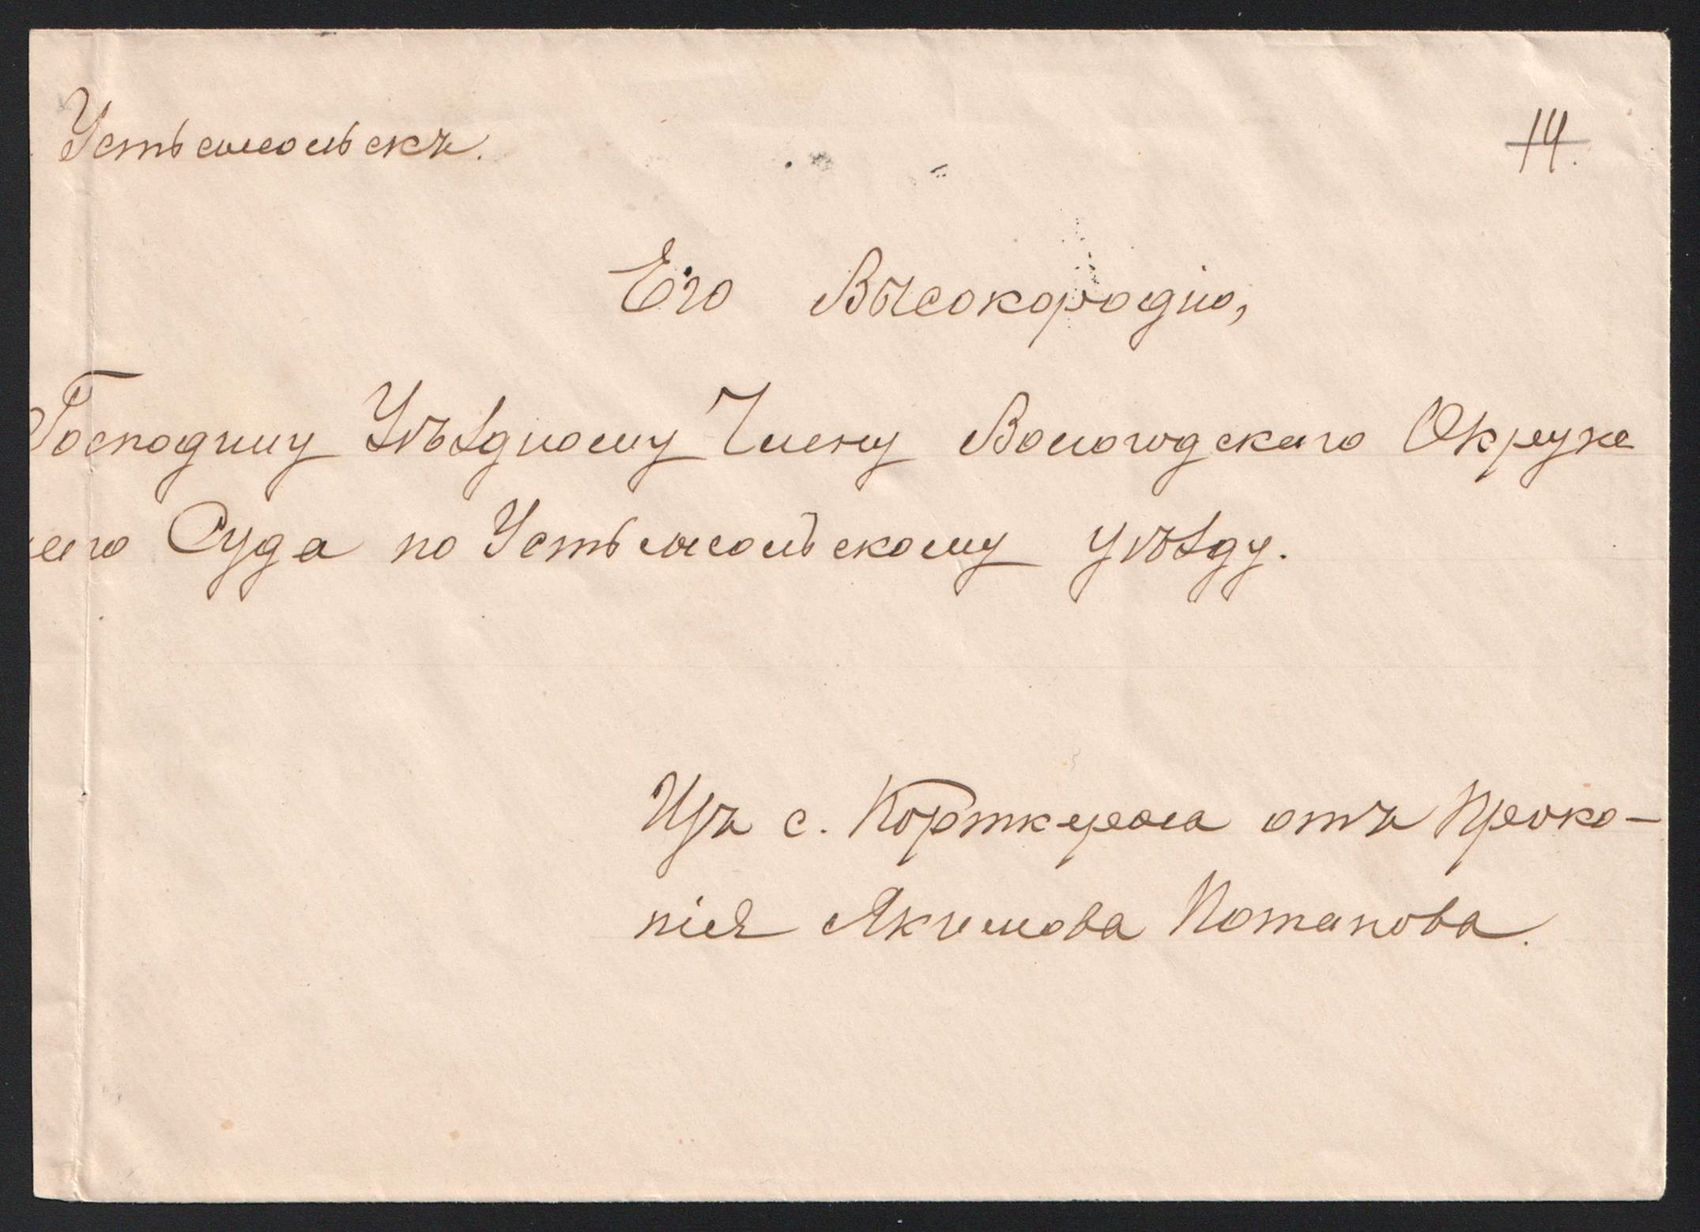 Устьсысольскъ.
14.
Его Высокородію,
Господину Уѣздному Члену Вологодскаго Окруж
наго Суда по Устьсысольскому уѣзду.
Изъ с. Корткероса отъ Проко-
пія Якимова Потапова.